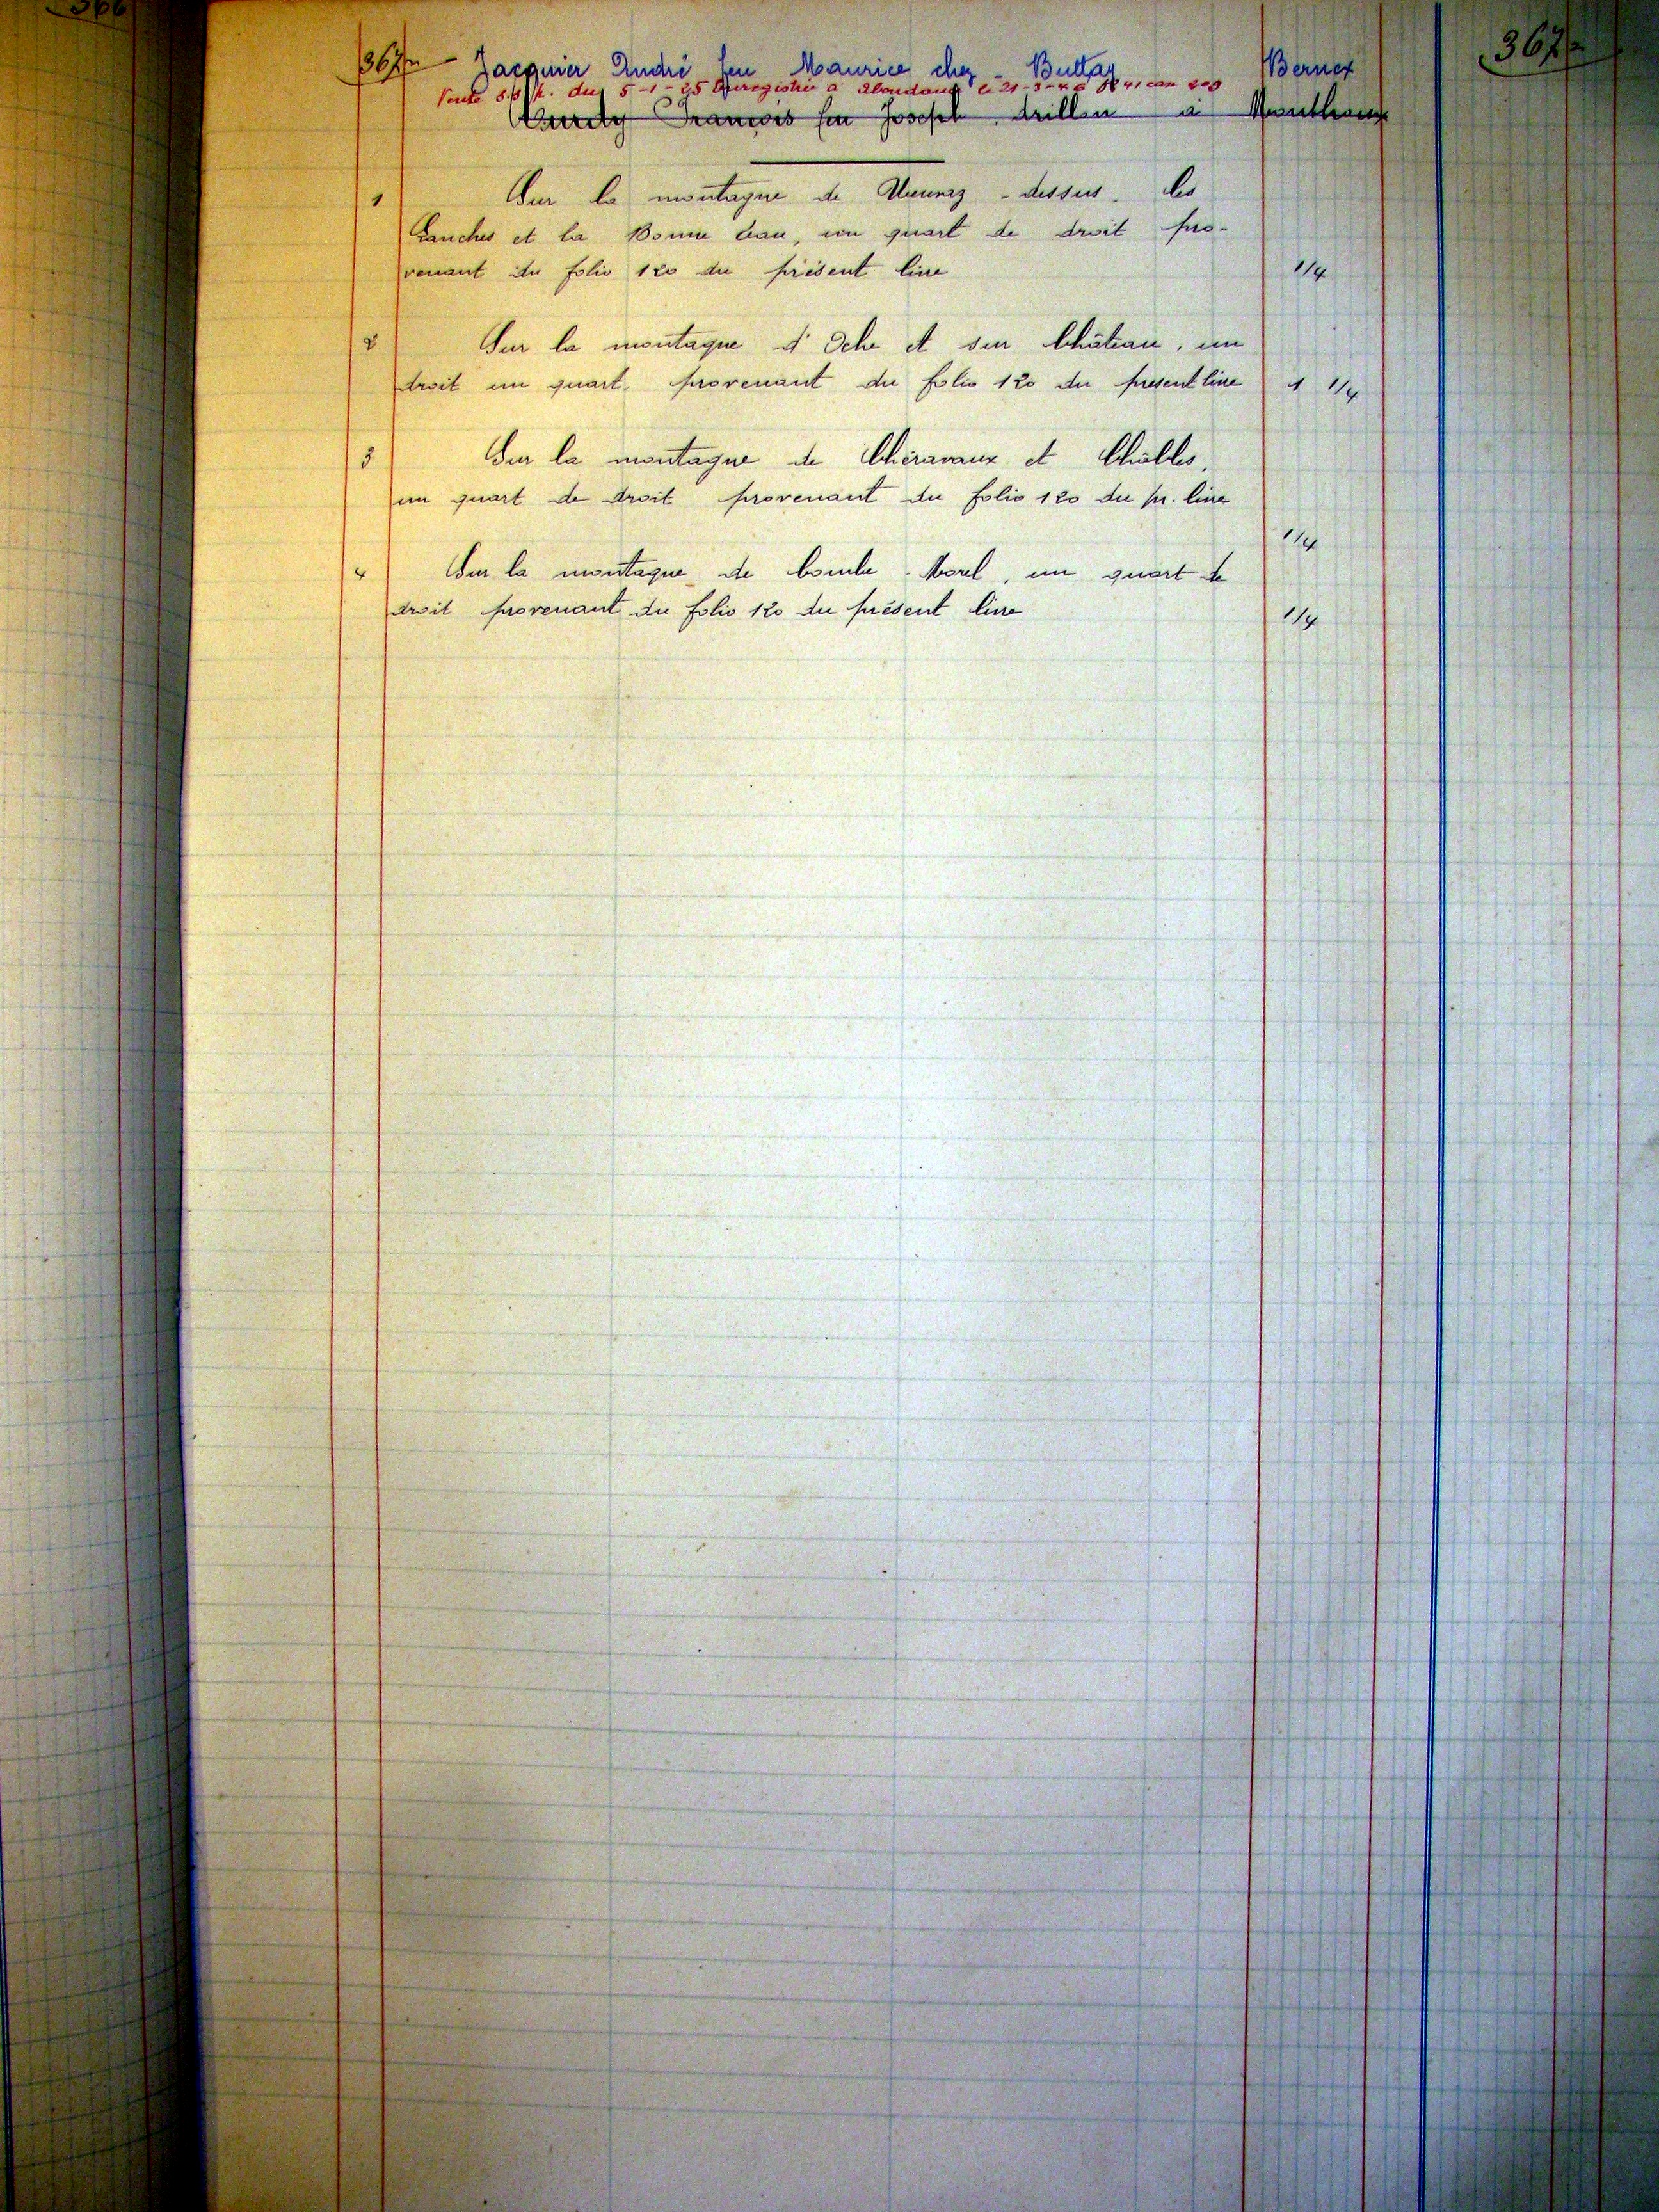 366
367
367 Jacquier André feu Maurice chez - Buttay Bernex
Vente s.s/p. du 5-1-25 Enregistré à Abondance le 21-3-
François feu Joseph, drillen à
1 Sur la montagne de - dessus. les
Lanches et la Bonne Eau, un quart de droit pro-
venant du folio 120 du présent livre 1/4
2 Sur la montagne d'Oche et sur Château, un
droit un quart, provenant du folio 120 du present livre 1 1/4
3 Sur la montagne de et
un quart de droit provenant du folio 120 du pr. livre
1/4
4 Sur la montagne de Combe - Morel, un quart de
droit provenant du folio 120 du présent livre 1/4